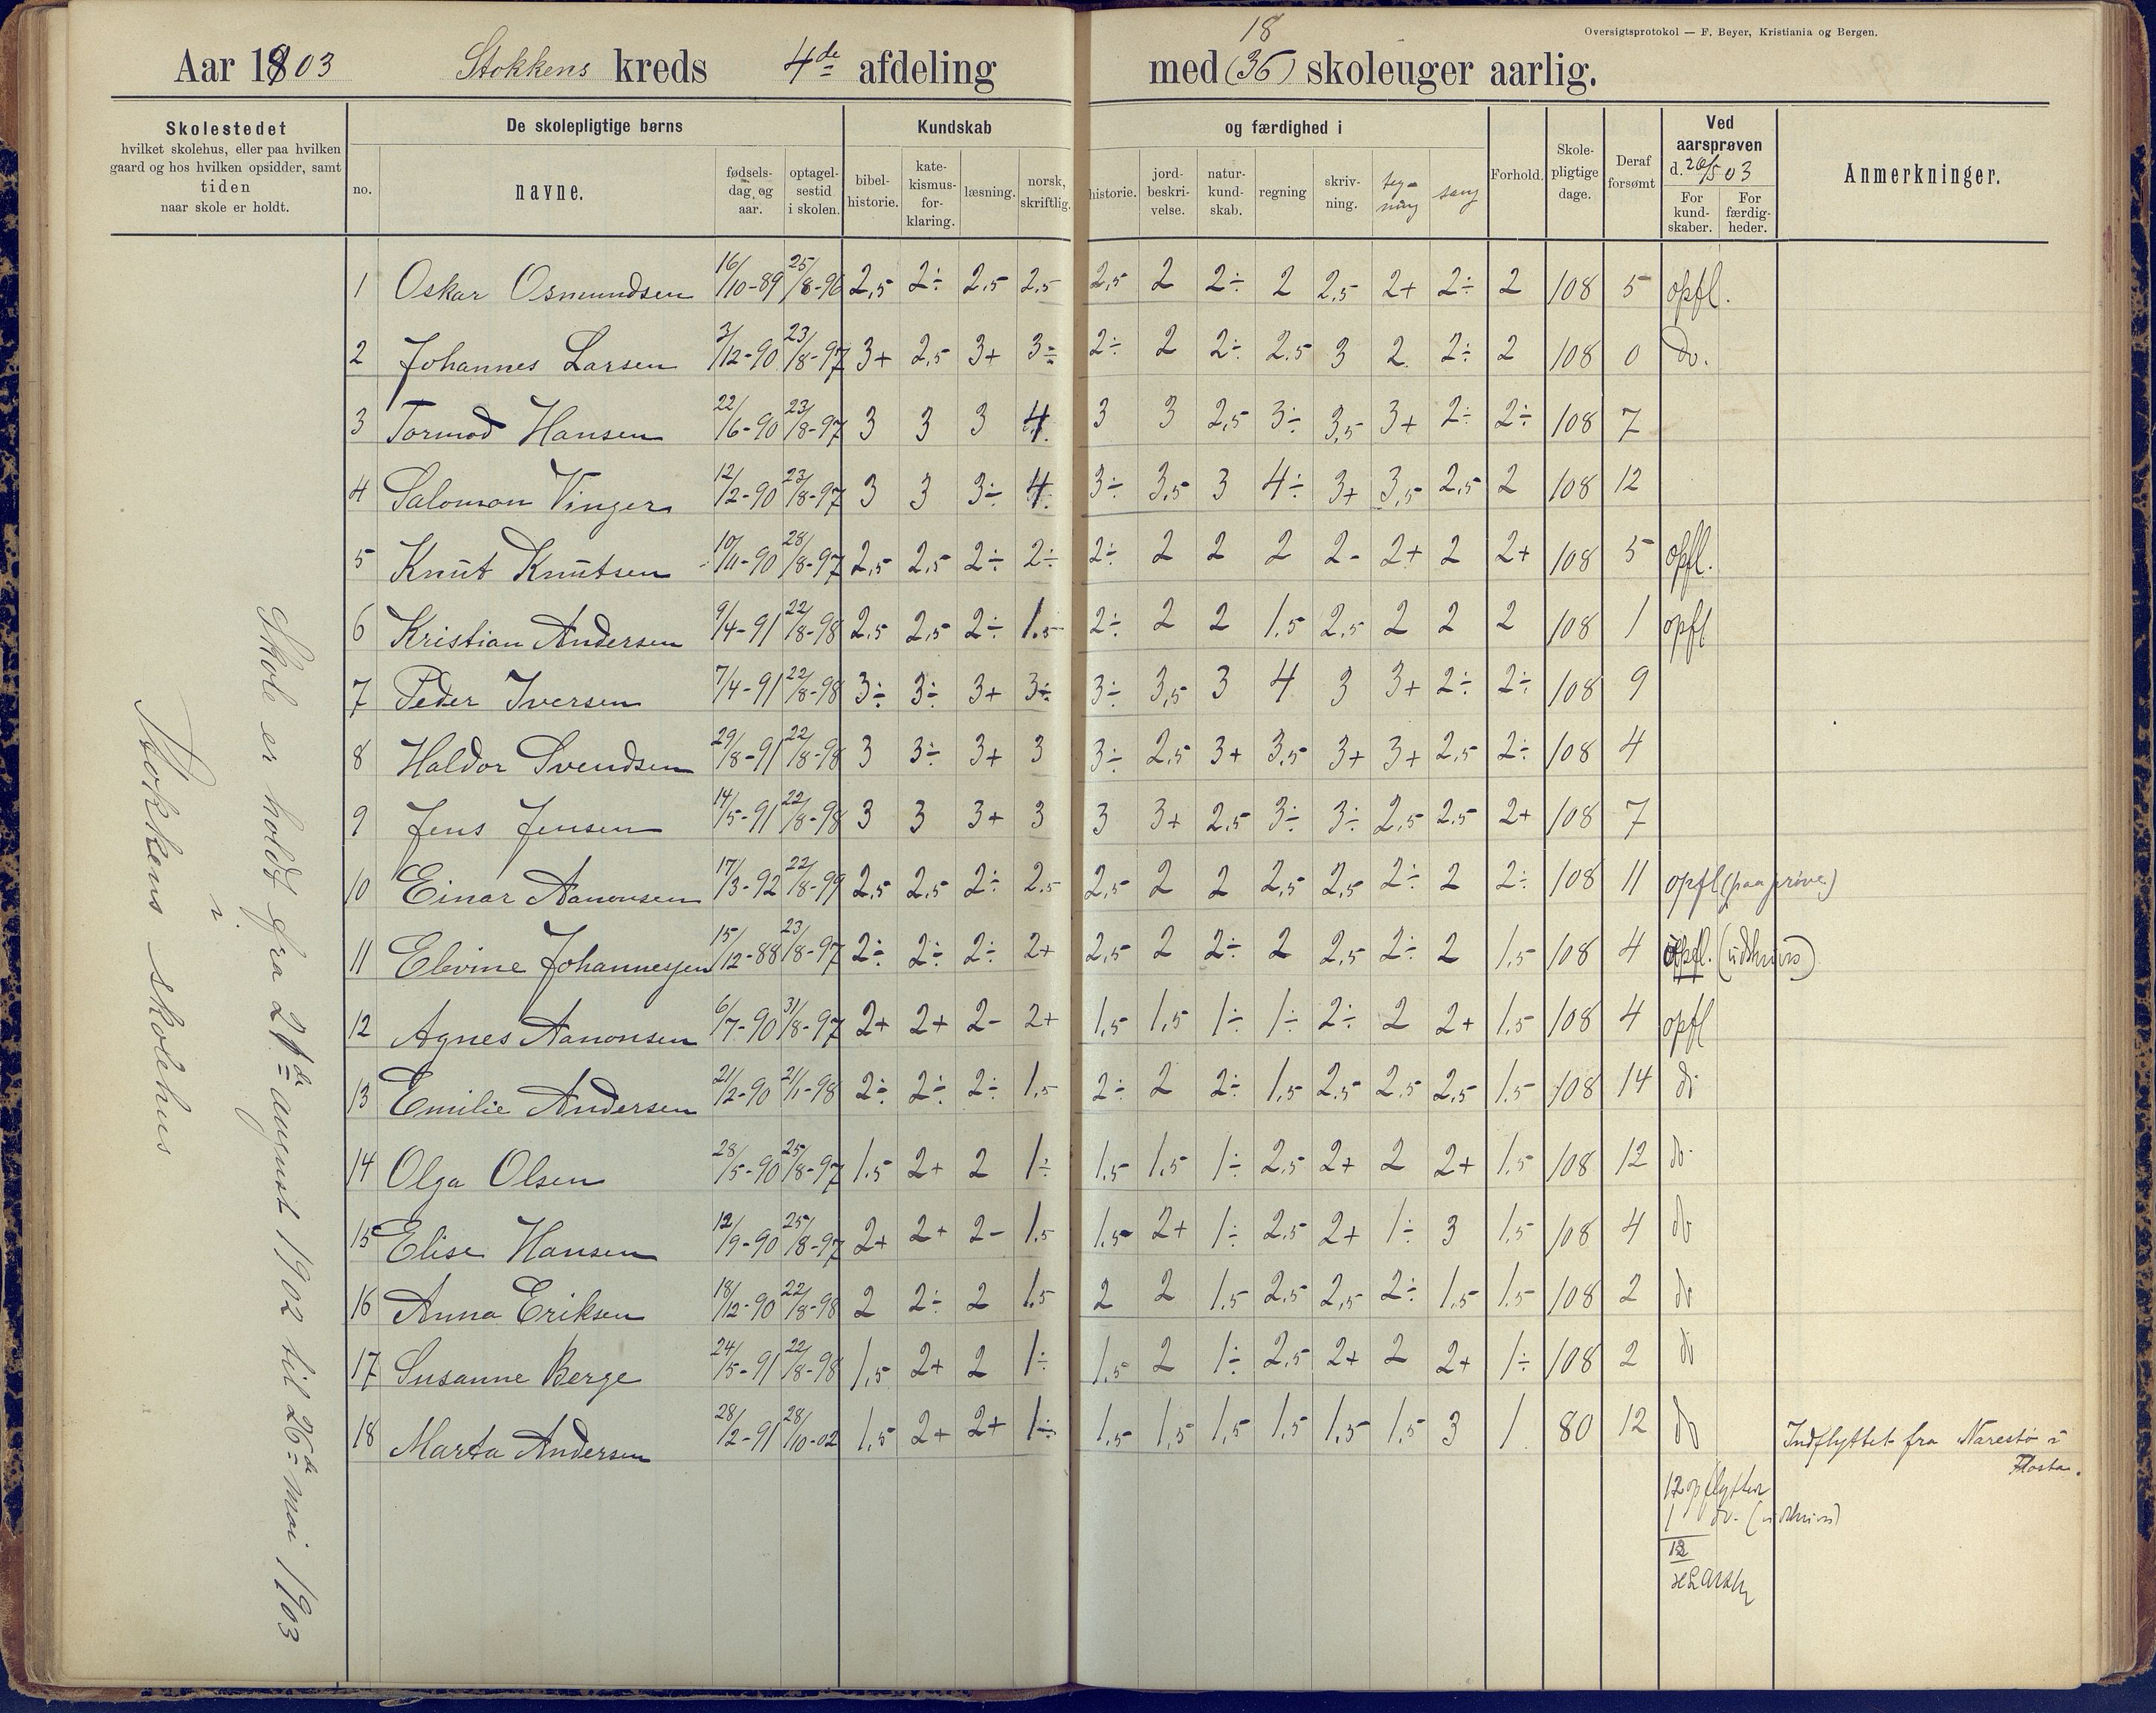 Oversigtsprotokol — F. Beyer, Kristiania og Bergen.
18
Aar 1903 Stokkens kreds 4de afdeling med (36) skoleuger aarlig.
Skolestedet
hvilket skolehus, eller paa hvilken
gaard og hos hvilken opsidder, samt
tiden
naar skole er holdt.
De skolepligtige børns
no.
navne.
fødsels-
dag og
aar.
optagel-
sestid
i skolen.
Kundskab
bibel-
historie.
kate-
kismus-
for-
klaring.
læsning.
norsk,
skriftlig.
og færdighed i
historie.
jord-
beskri-
velse.
natur-
kund-
skab.
regning
skriv-
ning.
teg-
ning
sang
Forhold.
Skole-
pligtige
dage.
Deraf
forsømt
Ved
aarsprøven
d. 26/5 03
For
kund-
skaber.
For
færdig-
heder.
Anmerkninger.
Skole er holdt fra 21de august 1902 til 26de mai 1903
i
Stokkens skolehus
1 Oskar Osmundsen 16/10-89 25/8-96 2,5 2÷ 2,5 2,5 2,5 2 2÷ 2 2,5 2+ 2÷ 2 108 5 opfl.
2 Johannes Larsen 3/12-90 23/8-97 3+ 2,5 3+ 3÷ 2÷ 2 2÷ 2,5 3 2 2÷ 2 108 0 do.
3 Tormod Hansen 22/6-90 23/8-97 3 3 3 4. 3 3 2,5 3÷ 3,5 3+ 2÷ 2÷ 108 7
4 Salomon Vinger 12/2-90 23/8-97 3 3 3÷ 4. 3÷ 3,5 3 4÷ 3+ 3,5 2,5 2 108 12
5 Knut Knutsen 10/11-90 28/8-97 2,5 2,5 2÷ 2÷ 2÷ 2 2 2 2- 2+ 2 2+ 108 5 opfl.
6 Kristian Andersen 9/4-91 22/8-98 2,5 2,5 2÷ 1.5 2÷ 2 2 1.5 2,5 2 2 2 108 1 opfl
7 Peder Iversen 7/4-91 22/8-98 3÷ 3÷ 3+ 3÷ 3÷ 3,5 3 4 3 3+ 2÷ 2÷ 108 9
8 Haldor Svendsen 29/8-91 22/8-98 3 3÷ 3+ 3 3÷ 2,5 3+ 3,5 3+ 3+ 2,5 2÷ 108 4
9 Jens Jensen 14/5-91 22/8-98 3 3 3+ 3 3 3+ 2,5 3÷ 3÷ 2,5 2,5 2+ 108 7
10 Einar Aanonsen 17/3-92 22/8-99 2,5 2,5 2÷ 2.5 2,5 2 2 2,5 2,5 2÷ 2 2÷ 108 11 opfl (paa prøve)
11 Elevine Johannessen 15/12-88 23/8-97 2÷ 2÷ 2÷ 2+ 2,5 2 2÷ 2 2,5 2÷ 2 1,5 108 4 opfl. (udskrives)
12 Agnes Aanonsen 6/7-90 31/8-97 2+ 2+ 2- 2+ 1,5 1,5 1÷ 1÷ 2÷ 2 2+ 1,5 108 4 opfl
13 Emilie Andersen 21/2-90 21/1-98 2÷ 2÷ 2÷ 1,5 2÷ 2 2÷ 1,5 2,5 2,5 2,5 1.5 108 14 do
14 Olga Olsen 28/5-90 25/8-97 1,5 2+ 2 1÷ 1,5 1,5 1÷ 2,5 2+ 2 2+ 1,5 108 12 do
15 Elise Hansen 12/9-90 25/8-97 2+ 2+ 2- 1,5 1,5 2+ 1÷ 2,5 2+ 1÷ 3 1,5 108 4 do
16 Anna Eriksen 18/12-90 22/8-98 2 2÷ 2 1,5 2 2 1,5 2,5 2,5 2÷ 1,5 1,5 108 2 do
17 Susanne Berge 24/5-91 22/8-98 1,5 2+ 2 1÷ 1,5 2 1÷ 2,5 2+ 2 2+ 1÷ 108 2 do
18 Marta Andersen 28/2-91 28/10-02 1,5 2+ 2+ 1÷ 1,5 1,5 1,5 1,5 1,5 1,5 3 1 80 12 do Indflyttet fra Narestø i
Flosta.
12 opflytter
1 do. (udskrives)
13